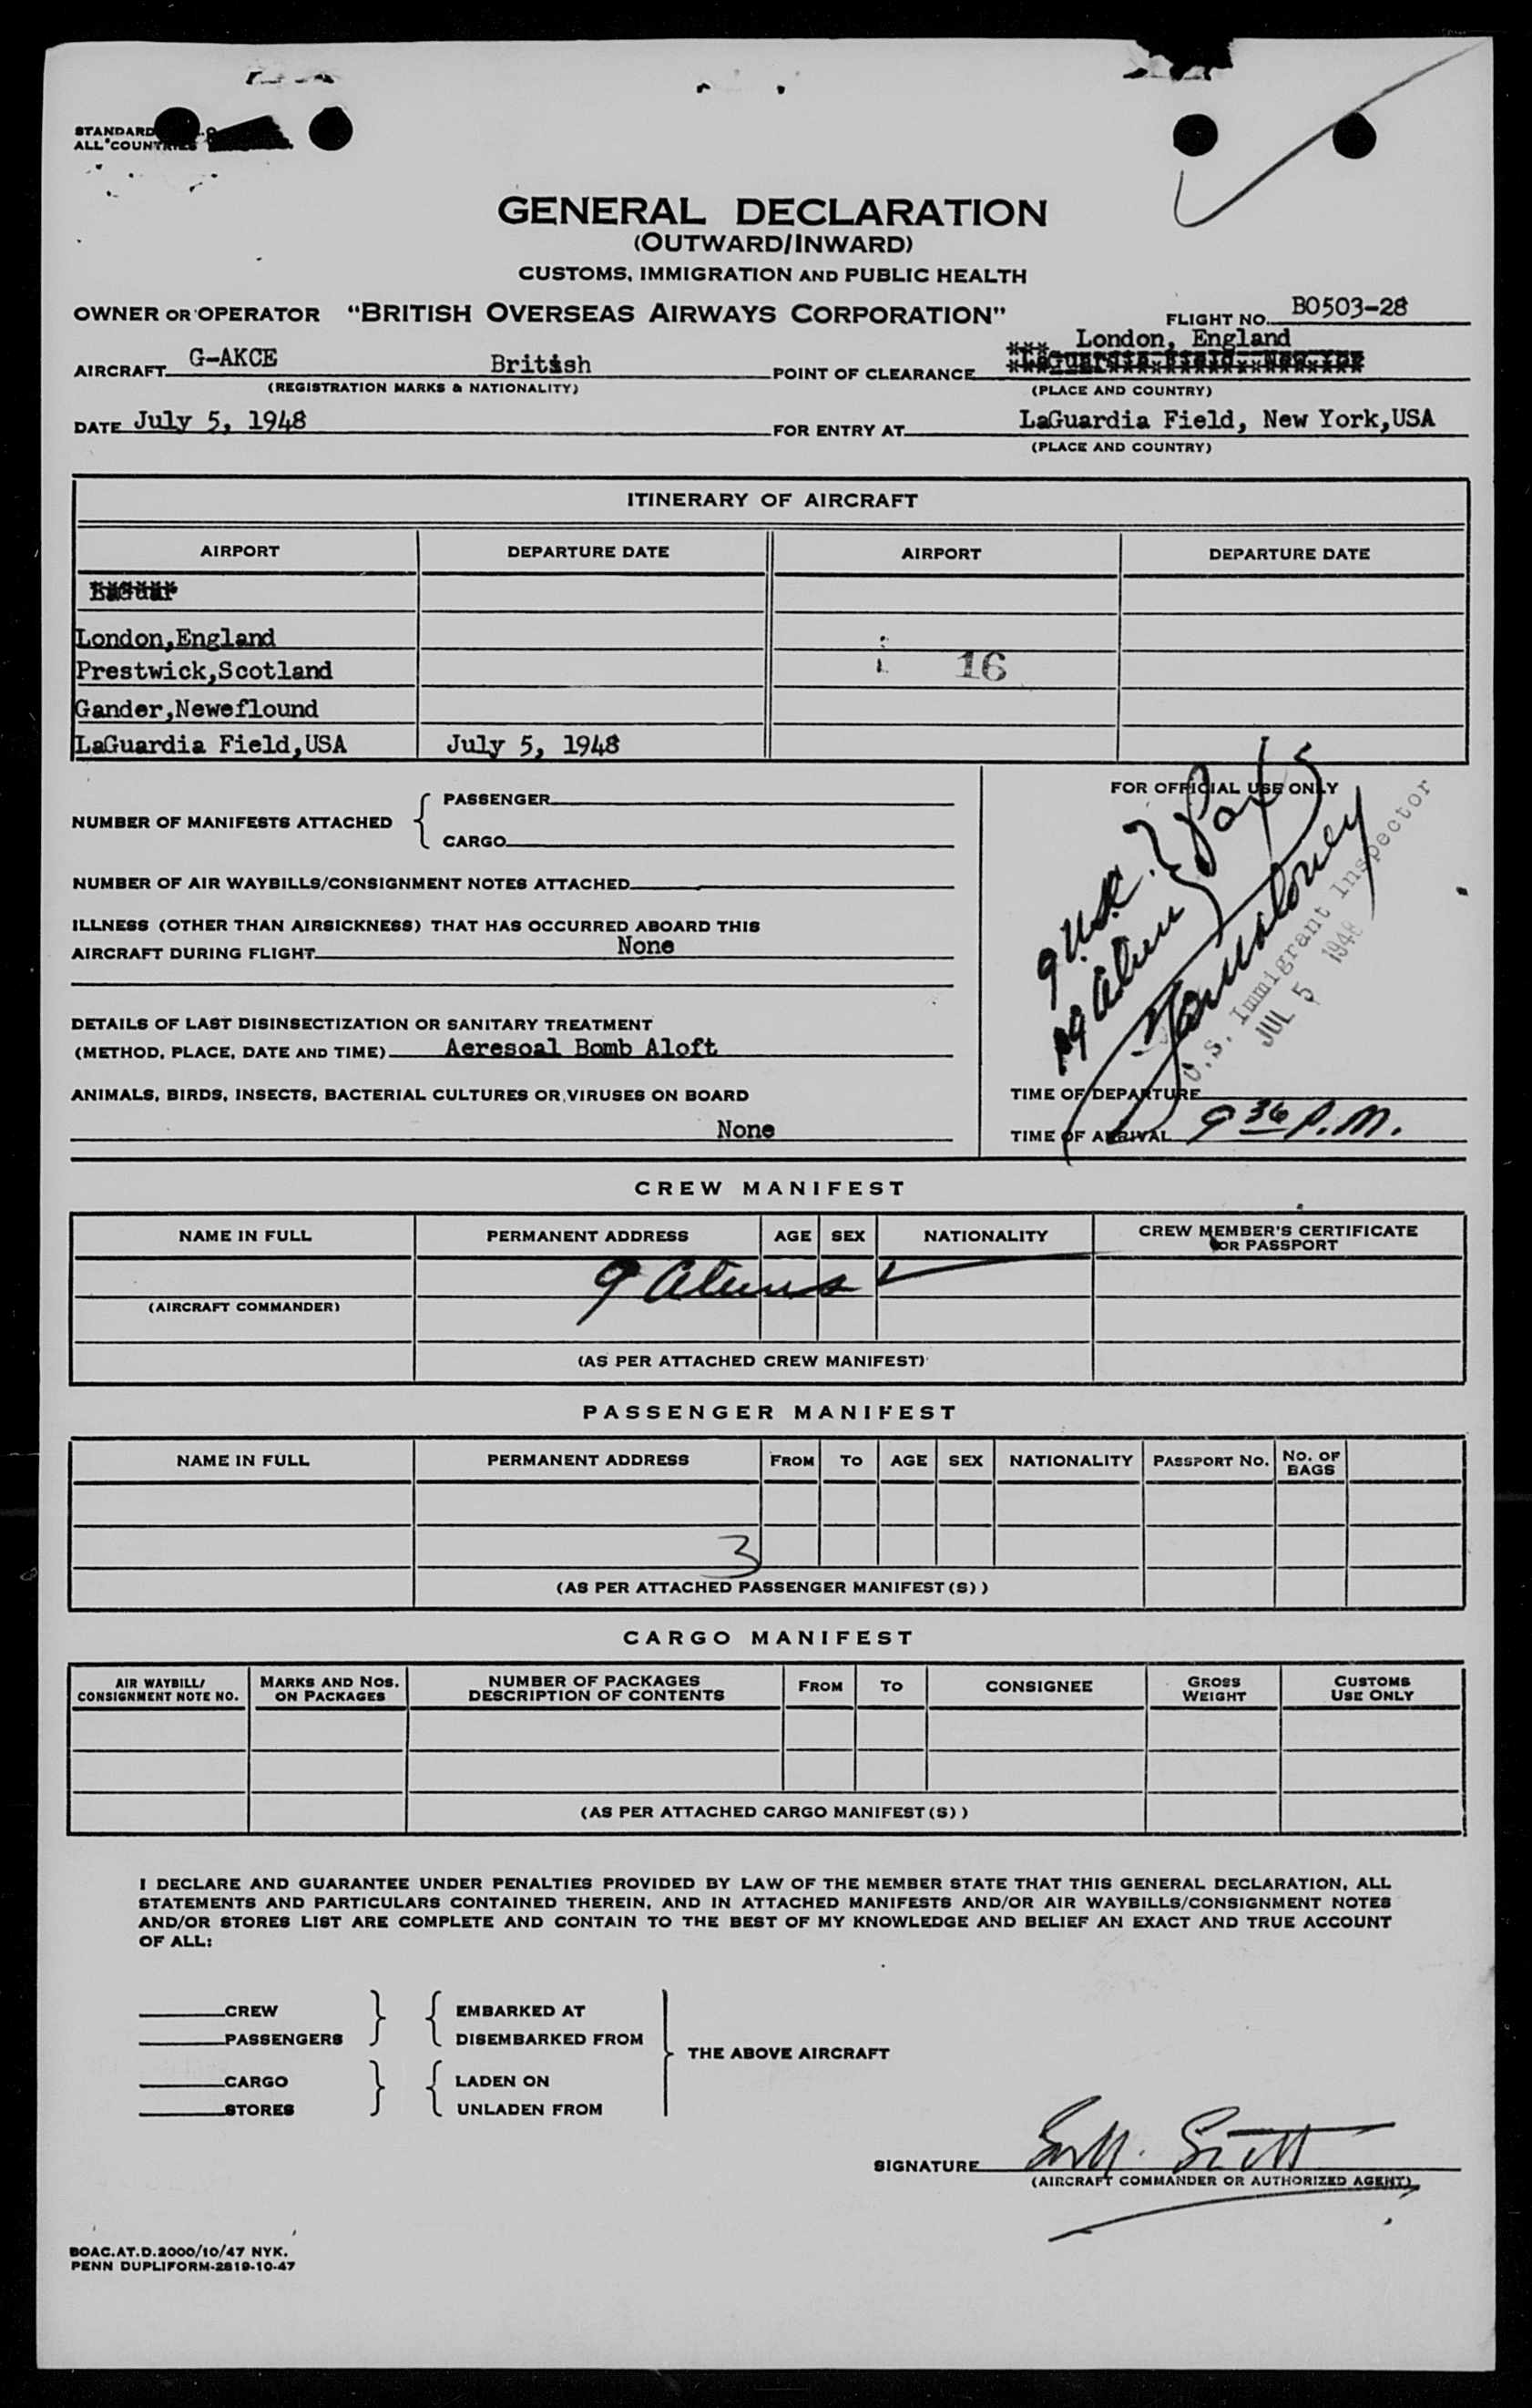 STANDARD
ALL COUNTRIES
GENERAL DECLARATION
(OUTWARD/INWARD)
CUSTOMS, IMMIGRATION AND PUBLIC HEALTH
OWNER OR OPERATOR "BRITISH OVERSEAS AIRWAYS CORPORATION" FLIGHT NO. BO503-28
London, England
AIRCRAFT G-AKCE British POINT OF CLEARANCE LaGuardia Field, New Yor
(REGISTRATION MARKS & NATIONALITY) (PLACE AND COUNTRY)
DATE July 5, 1948 FOR ENTRY AT LaGuardia Field, New York,USA
(PLACE AND COUNTRY)
ITINERARY OF AIRCRAFT
AIRPORT DEPARTURE DATE AIRPORT DEPARTURE DATE
LaGuar
London,England
Prestwick,Scotland 16
Gander,Neweflound
LaGuardia Field,USA July 5, 1948
FOR OFFICIAL USE ONLY
NUMBER OF MANIFESTS ATTACHED { PASSENGER
CARGO
NUMBER OF AIR WAYBILLS/CONSIGNMENT NOTES ATTACHED
ILLNESS (OTHER THAN AIRSICKNESS) THAT HAS OCCURRED ABOARD THIS
AIRCRAFT DURING FLIGHT None
DETAILS OF LAST DISINSECTIZATION OR SANITARY TREATMENT
(METHOD, PLACE, DATE AND TIME) Aeresoal Bomb Aloft
ANIMALS, BIRDS, INSECTS, BACTERIAL CULTURES OR VIRUSES ON BOARD
None
U.S. Immigrant Inspector
JUL 5 1948
TIME OF DEPARTURE
TIME OF ARRIVAL 9 36 P.M.
CREW MANIFEST
NAME IN FULL PERMANENT ADDRESS AGE SEX NATIONALITY CREW MEMBER'S CERTIFICATE
OR PASSPORT
9 Aliens
(AIRCRAFT COMMANDER)
(AS PER ATTACHED CREW MANIFEST)
PASSENGER MANIFEST
NAME IN FULL PERMANENT ADDRESS FROM TO AGE SEX NATIONALITY PASSPORT NO. NO. OF
BAGS
3
(AS PER ATTACHED PASSENGER MANIFEST (S) )
CARGO MANIFEST
AIR WAYBILL/ MARKS AND NOS. NUMBER OF PACKAGES FROM TO CONSIGNEE GROSS CUSTOMS
CONSIGNMENT NOTE NO. ON PACKAGES DESCRIPTION OF CONTENTS WEIGHT USE ONLY
(AS PER ATTACHED CARGO MANIFEST (S) )
I DECLARE AND GUARANTEE UNDER PENALTIES PROVIDED BY LAW OF THE MEMBER STATE THAT THIS GENERAL DECLARATION, ALL
STATEMENTS AND PARTICULARS CONTAINED THEREIN, AND IN ATTACHED MANIFESTS AND/OR AIR WAYBILLS/CONSIGNMENT NOTES
AND/OR STORES LIST ARE COMPLETE AND CONTAIN TO THE BEST OF MY KNOWLEDGE AND BELIEF AN EXACT AND TRUE ACCOUNT
OF ALL:
CREW } { EMBARKED AT
PASSENGERS DISEMBARKED FROM
THE ABOVE AIRCRAFT
CARGO } { LADEN ON
STORES UNLADEN FROM
SIGNATURE
(AIRCRAFT COMMANDER OR AUTHORIZED AGENT)
BOAC.AT.D.2000/10/47 NYK.
PENN DUPLIFORM-2819-10-47